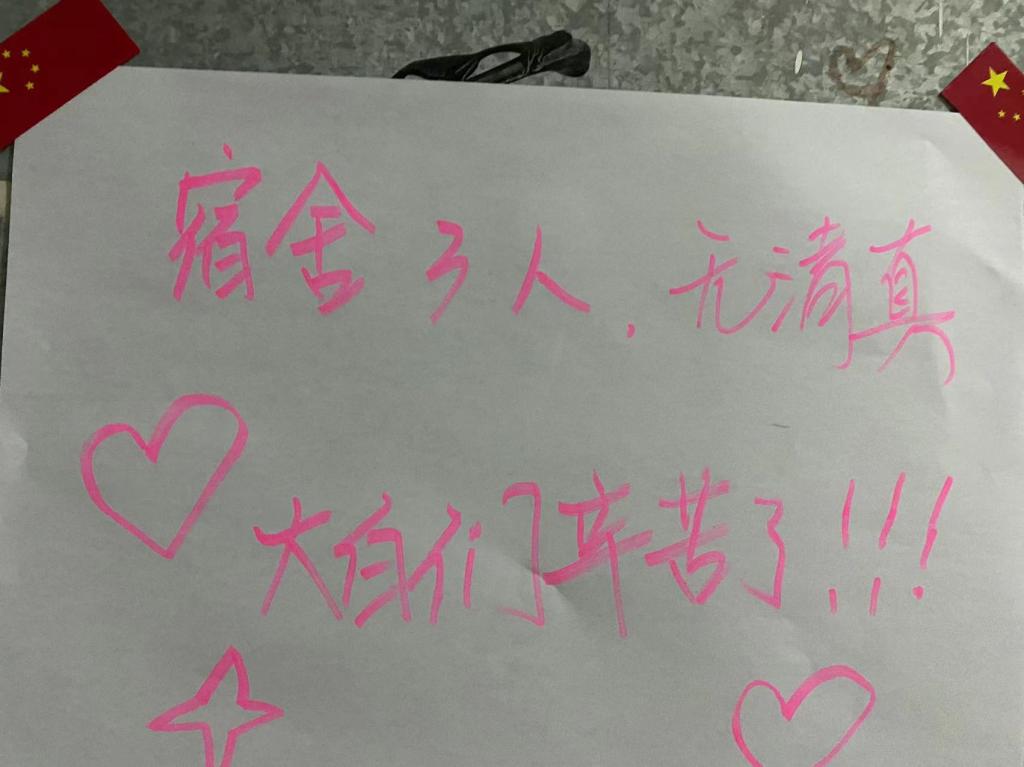 宿舍3人,无清真
大白们辛苦了!!!